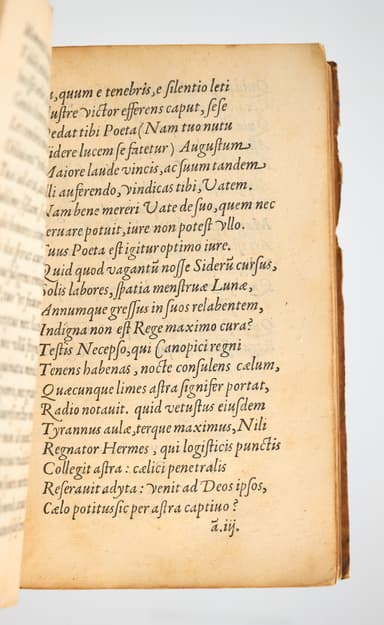 quum e tenebris, e silentio leti
victor efferens caput, sese
tibi Poeta (Nam tuo nutu
lucem se fatetur) Augustum
Maiore laude vincis, ac suum tandem
auferendo, vindicas tibi, Vatem.
Nam bene mereri Vate de suo, quem nec
potuit, iure non potest vllo.
Tuus Poeta est igitur optimo iure.
Quid quod vagantũ nosse Siderũ cursus,
Solis labores, spatia menstruæ Lunæ,
Annumque gressus in suos relabentem,
Indigna non est Rege maximo cura?
Testis Necepso, qui Canopici regni
Tenens habenas, nocte consulens cælum,
Quæcunque limes astra signifer portat,
Radio notauit. quid vetustus eiusdem
Tyrannus aulæ, terque maximus, Nili
Regnator Hermes, qui logisticis punctis
Collegit astra: cælici penetralis
Reserauit adyta: venit ad Deos ipsos,
Cælo potitus sic per astra captiuo?
ã.iij.